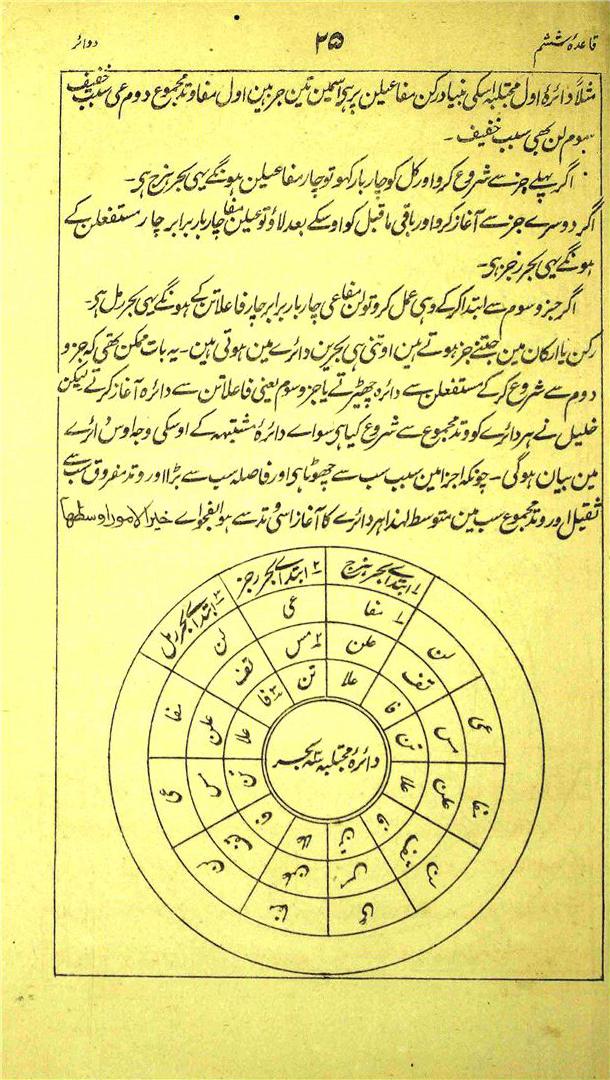 قاعدۂ ششم
۲۵
دوائر
مثلاً دائرۂ اول مجتلبہ اسکی بنیاد رکن مفاعیلن پر ہی اسمین تین جز ہین اول مفا وتد مجموع دوم عی سبب خفیف
سوم لن بھی سبب خفیف ۔
اگر پہلے جز سے شروع کرو اور کل کو چار بار کہو تو چار مفاعیلن ہونگے یہی بحر ہزج ہی۔
اگر دوسرے جز سے آغاز کرو اور باقی ماقبل کو اوسکے بعد لاؤ تو عیلن مفا چار بار برابر چار مستفعلن کے
ہونگے یہی بحر رجز ہی۔
اگر جزو سوم سے ابتدا کر کے وہی عمل کرو تو لن مفاعی چار بار برابر چار فاعلاتن کے ہونگے یہی بحر رمل ہی۔
رکن یا ارکان مین جتنے جز ہوتے ہین اوتنی ہی بحرین دائرے مین ہوتی ہین ۔ یہ بات ممکن تھی کہ جزو
دوم سے شروع کر کے مستفعلن سے دائرہ چھیڑتے یا جزو سوم یعنی فاعلاتن سے دائرہ آغاز کرتے لیکن
خلیل نے ہر دائرے کو وتد مجموع سے شروع کیا ہی سواے دائرۂ مشتبہہ کے اوسکی وجہ اوس دائرے
مین بیان ہوگی ۔ چونکہ اجزا مین سبب سب سے چھوٹا ہی اور فاصلہ سب سے بڑا اور وتد مفروق سب سے
ثقیل اور وتد مجموع سب مین متوسط لہذا ہر دائرے کا آغاز اسی وتد سے ہوا بفحواے خیر الامور اوسطہا
۱ ابتداے بحر ہزج
۲ ابتداے بحر رجز
۳ ابتداے بحر رمل
۱ مفا
عی
لن
مفا
عی
لن
مفا
عی
لن
مفا
عی
لن
علن
۲ مس
تف
علن
مس
تف
علن
مس
تف
علن
مس
تف
علا
تن
۳ فا
علا
تن
فا
علا
تن
فا
علا
تن
فا
دائرۂ مجتلبہ سہ بحر